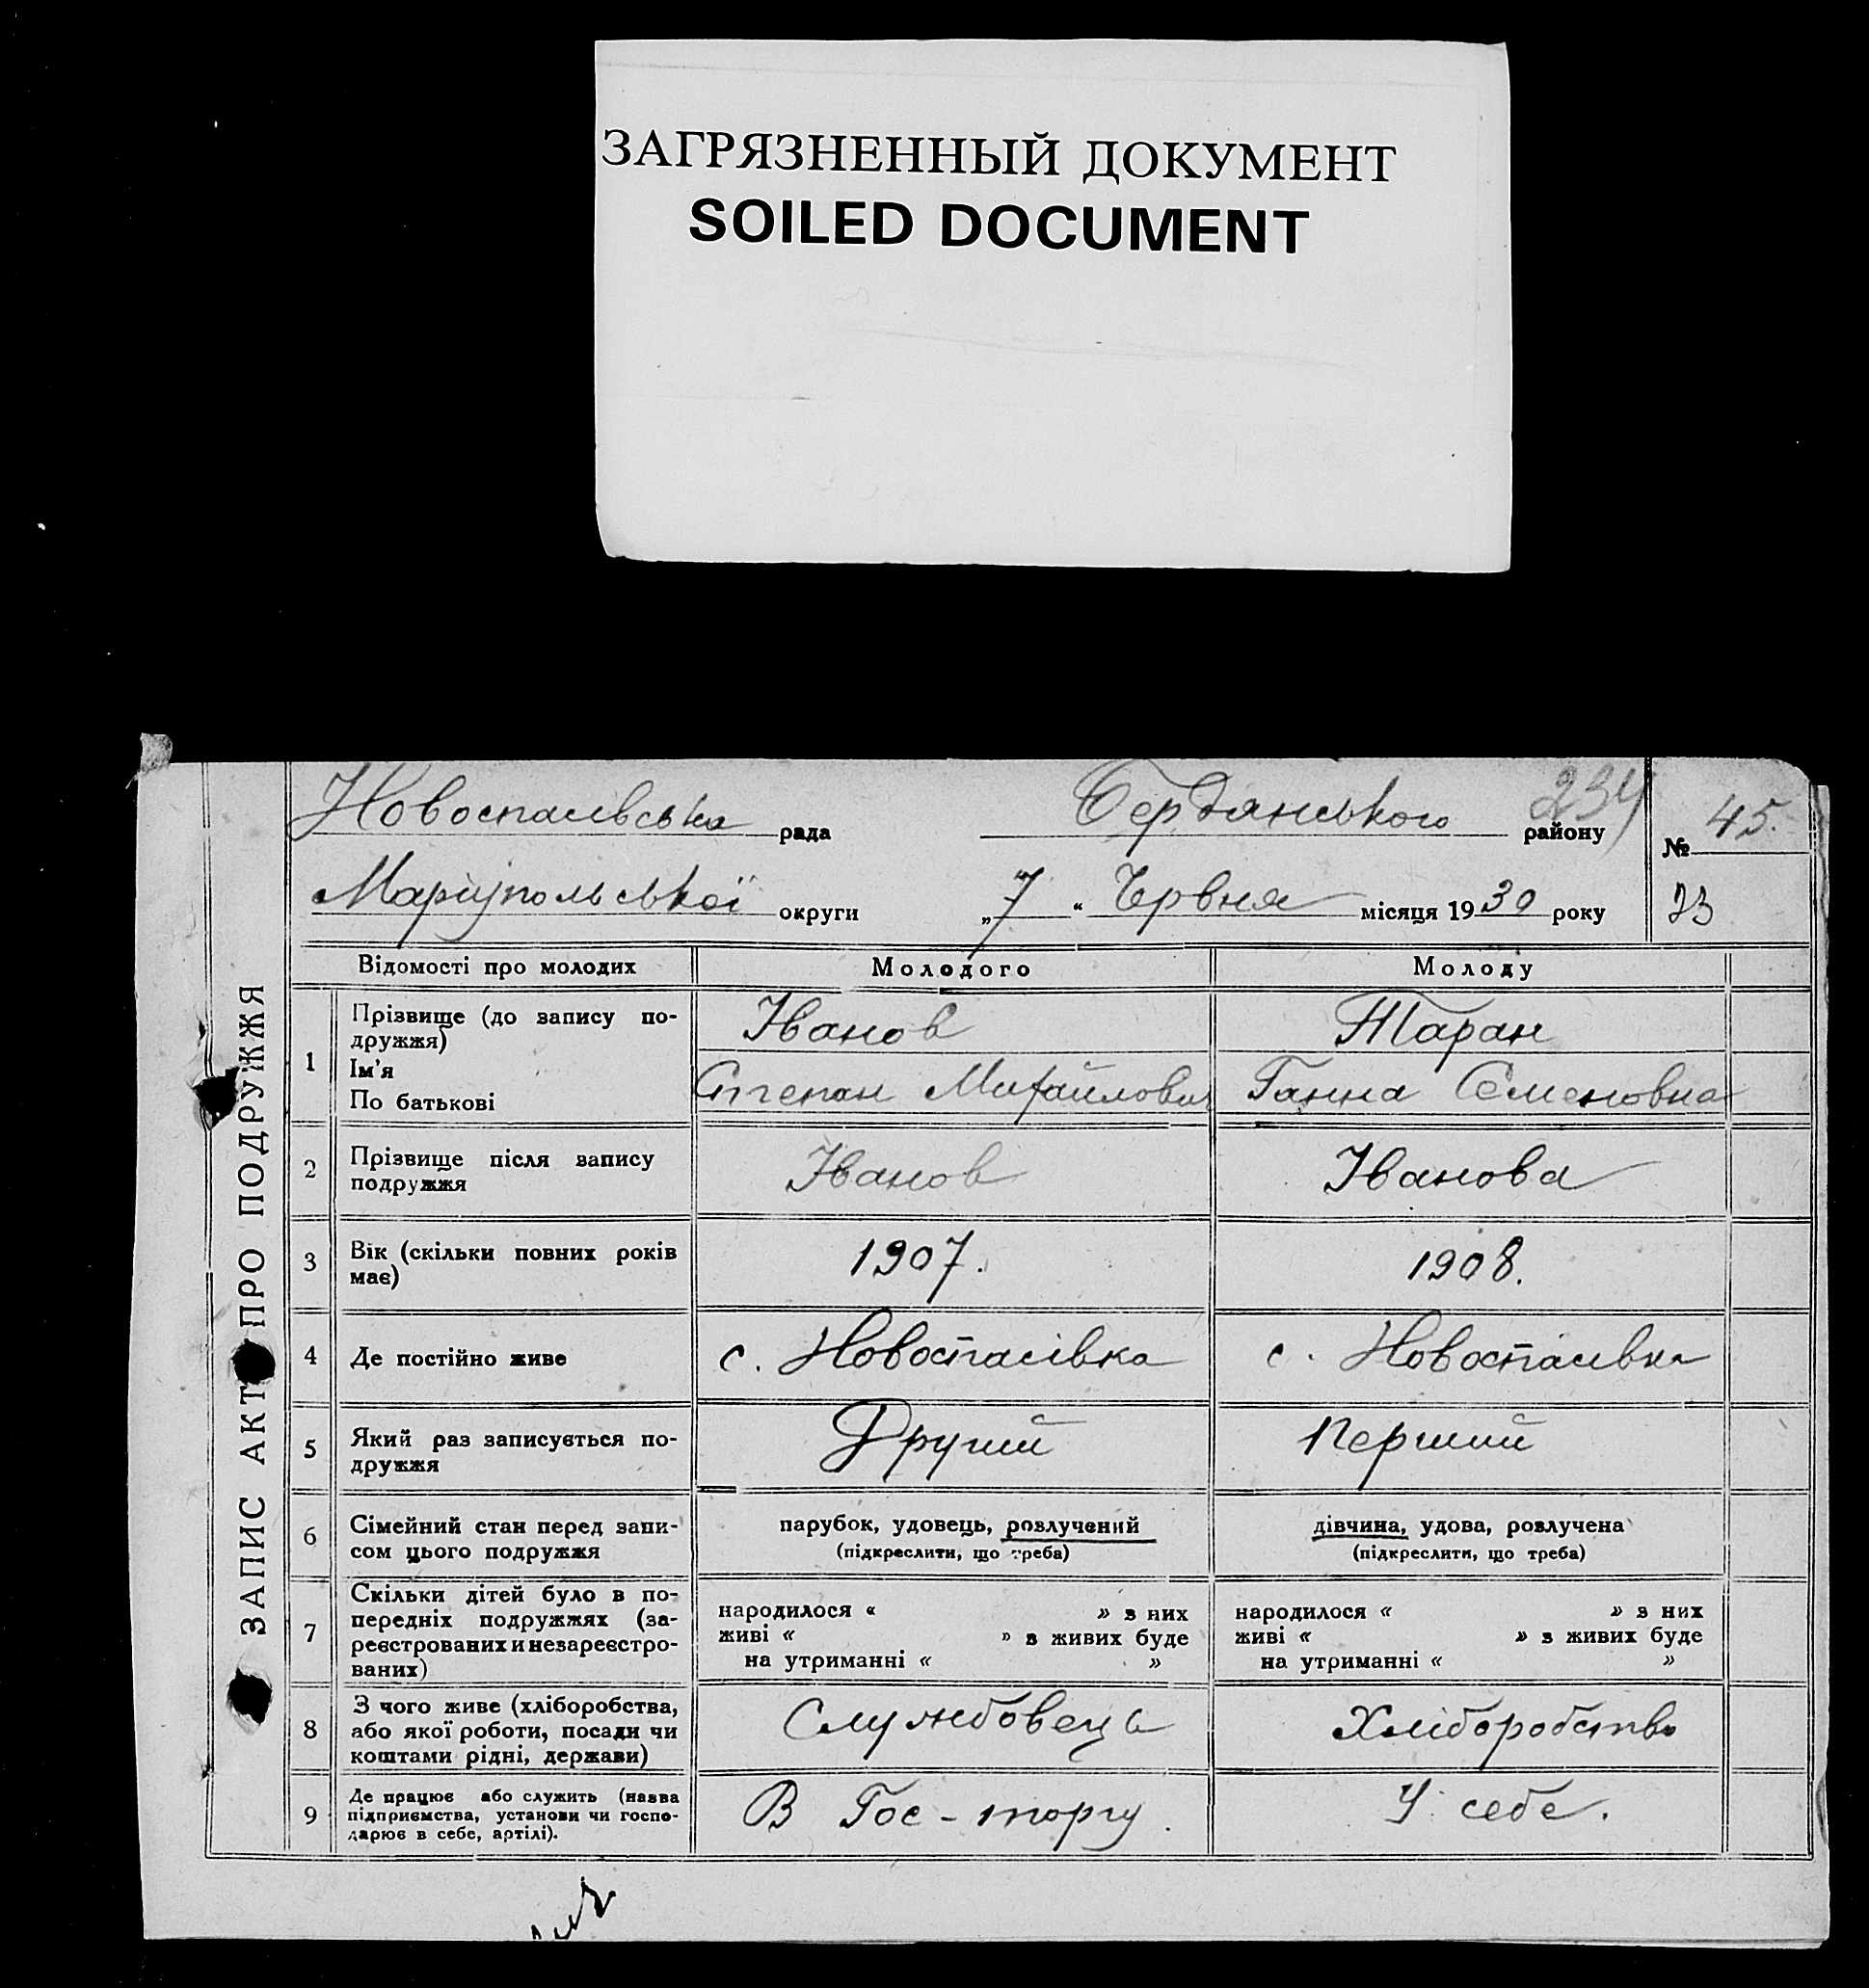 ЗАГРЯЗНЕННЫЙ ДОКУМЕНТ
SOILED DOCUMENT
ЗАПИС АКТ ПРО ПОДРУЖЖЯ
Новоспасівська рада Бердянського району 234 № 45.
Маріупольської округи „7“ Червня місяця 1930 року 23
Відомості про молодих Молодого Молоду
1 Прізвище (до запису по-
дружжя) Іванов Таран
Ім'я
По батькові Степан Михайлович Ганна Семеновна
2 Прізвище після запису
подружжя Іванов Іванова
3 Вік (скільки повних років
має) 1907. 1908.
4 Де постійно живе с. Новоспасівка с. Новоспасівка
5 Який раз записується по-
дружжя Другий Перший
6 Сімейний стан перед запи-
сом цього подружжя парубок, удовець, розлучений дівчина, удова, розлучена
(підкреслити, що треба) (підкреслити, що треба)
7 Скільки дітей було в по-
передніх подружжях (за-
реєстрованих и незареєстро-
ваних)
народилося « » з них народилося « » з них
живі « » з живих буде живі « » з живих буде
на утриманні « » на утриманні « »
8 З чого живе (хліборобства,
або якої роботи, посади чи
коштами рідні, держави) Службовець Хліборобство
9 Де працює або служить (назва
підприємства, установи чи госпо-
дарює в себе, артілі). В Гос-торгу. У себе.